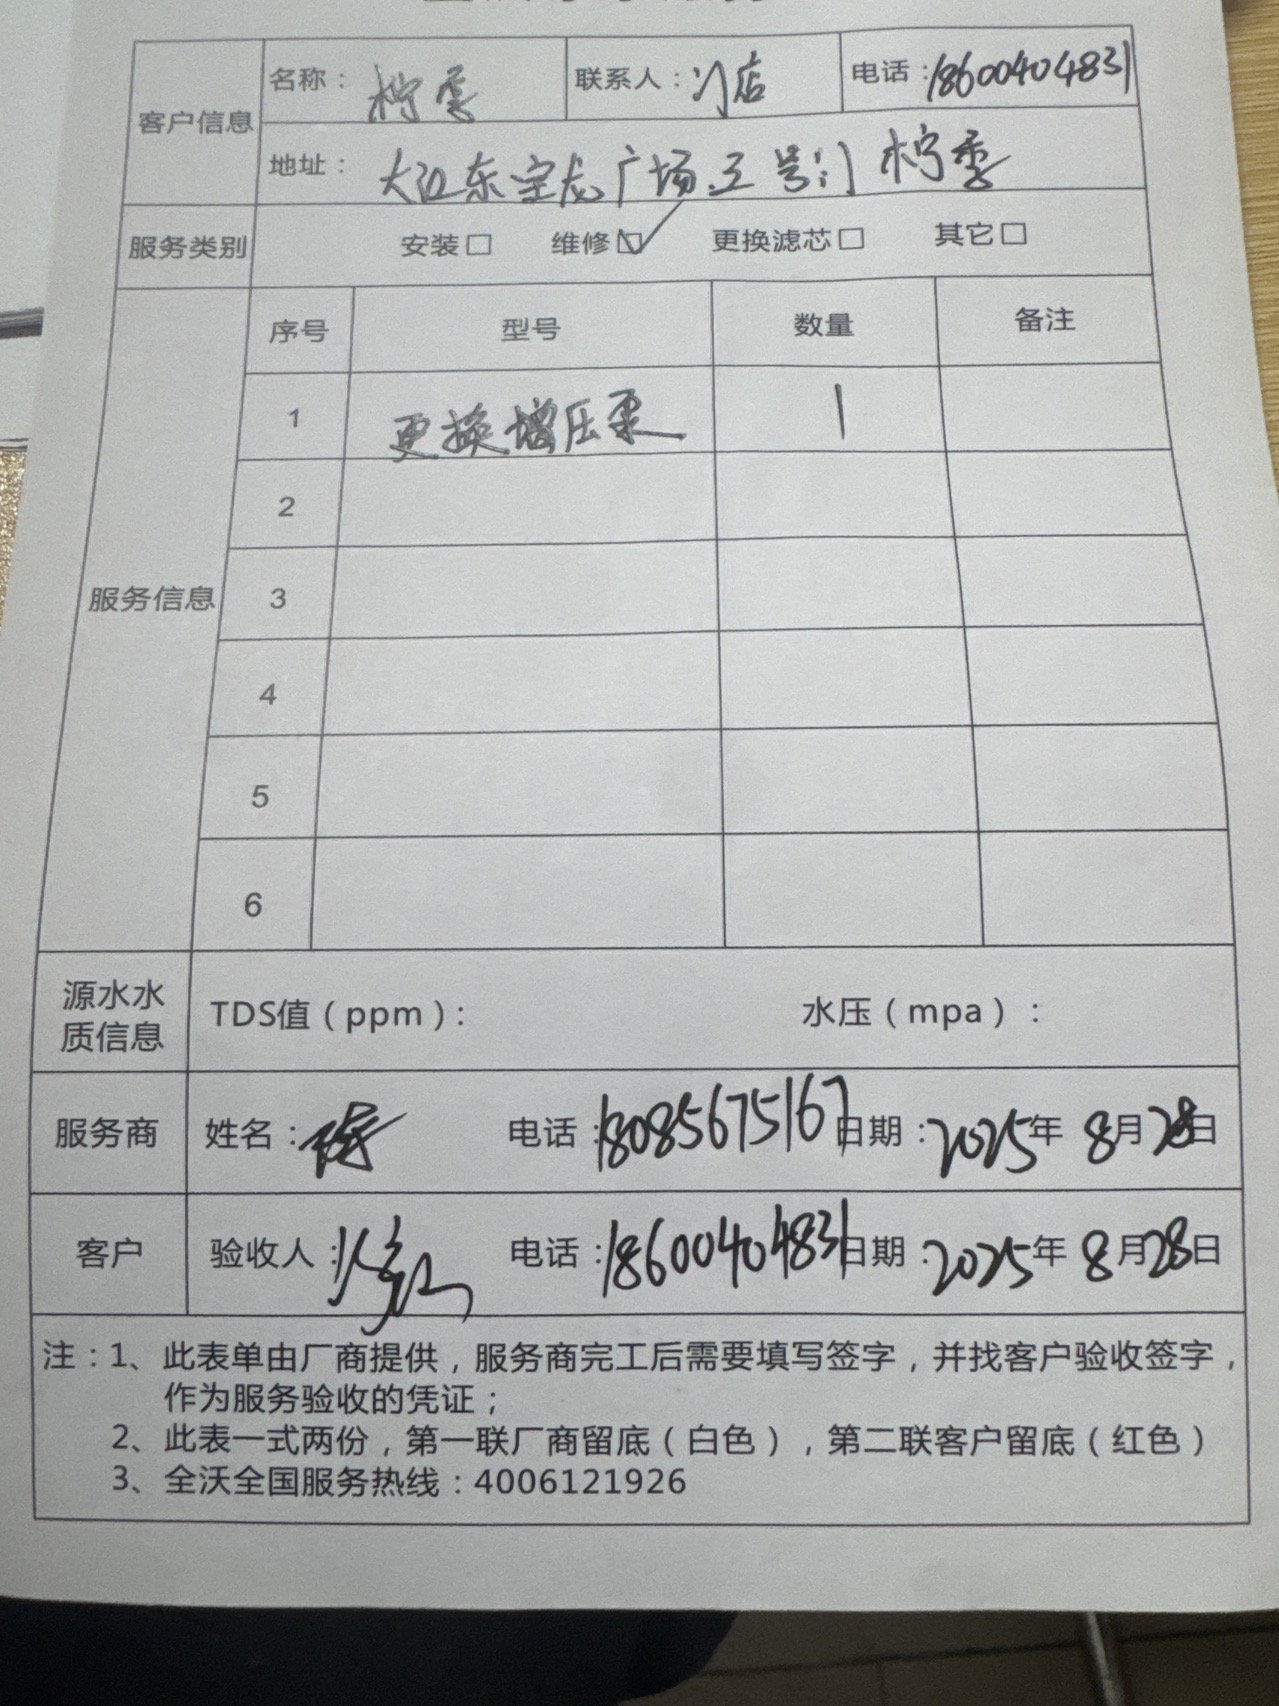 客户信息 名称：柠季 联系人：门店 电话：18600404831
地址：大江东宝龙广场.五号门 柠季
服务类别 安装□ 维修☑ 更换滤芯□ 其它□
服务信息 序号 型号 数量 备注
1 更换增压泵 1
2
3
4
5
6
源水水质信息 TDS值（ppm）： 水压（mpa）：
服务商 姓名： 电话：18085675167 日期：2025年8月28日
客户 验收人： 电话：18600404831 日期：2025年8月28日
注：1、此表单由厂商提供，服务商完工后需要填写签字，并找客户验收签字，
作为服务验收的凭证；
2、此表一式两份，第一联厂商留底（白色），第二联客户留底（红色）
3、全沃全国服务热线：4006121926